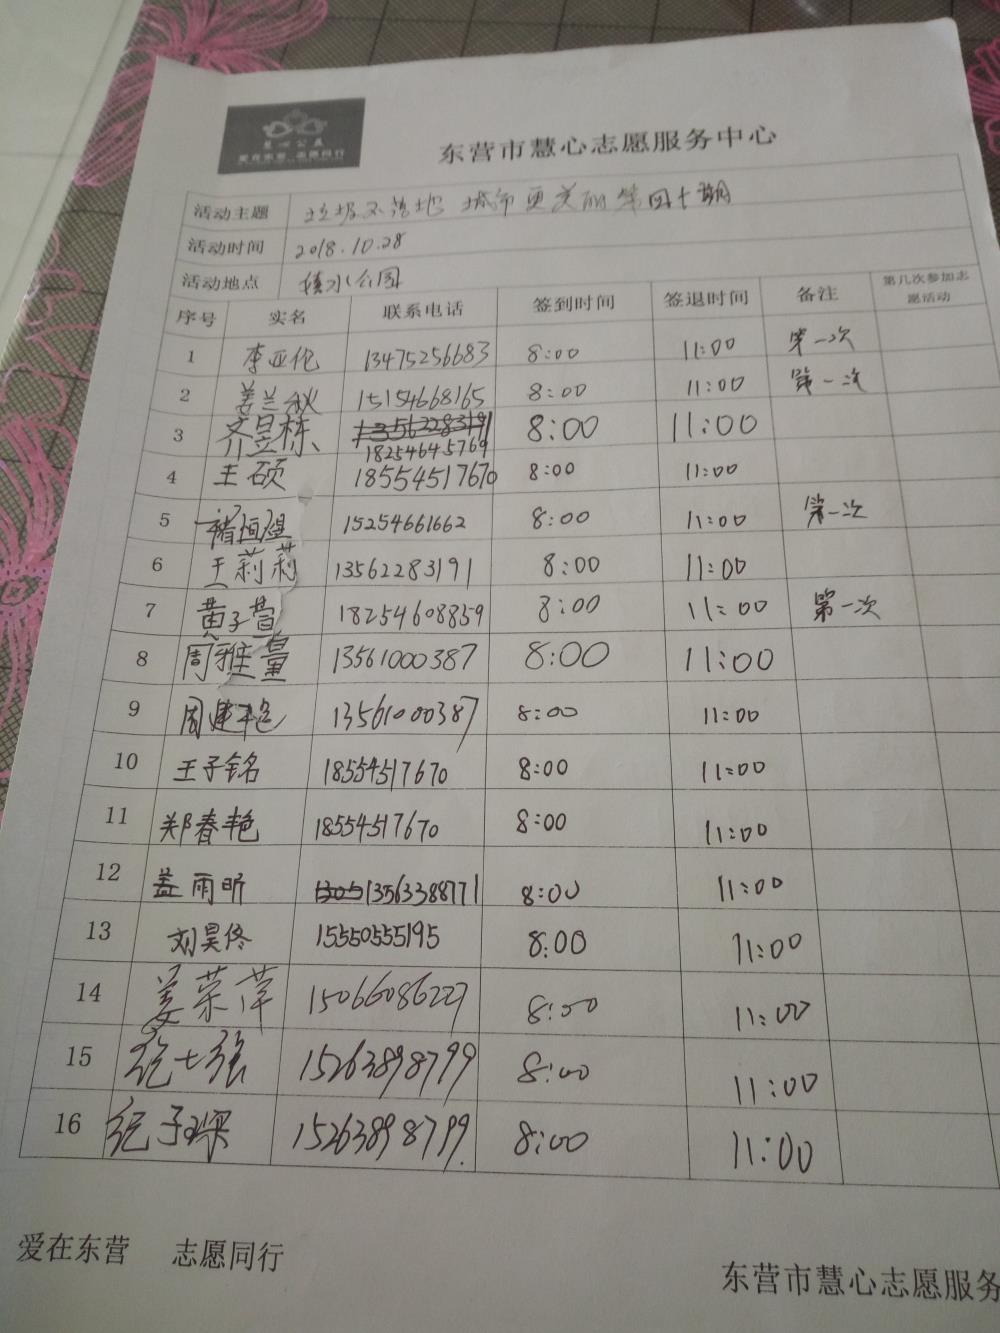 慧心公益
爱在东营 志愿同行
东营市慧心志愿服务中心
活动主题 垃圾不落地 城市更美丽第四十期
活动时间 2018.10.28
活动地点 公园
序号 实名 联系电话 签到时间 签退时间 备注 第几次参加志愿活动
1 李亚伦 13475256683 8:00 11:00 第一次
2 姜兰秋 15154668165 8:00 11:00 第一次
3 齐昱栋 18254645769 8:00 11:00
4 王硕 18554517670 8:00 11:00
5 褚恒温 15254661662 8:00 11:00 第一次
6 王莉莉 13562283191 8:00 11:00
7 黄子萱 18254608859 8:00 11:00 第一次
8 周雅量 13561000387 8:00 11:00
9 周建艳 13561000387 8:00 11:00
10 王子铭 18554517670 8:00 11:00
11 郑春艳 18554517670 8:00 11:00
12 盖雨昕 13563388771 8:00 11:00
13 刘昊佟 15550555195 8:00 11:00
14 姜荣萍 15066086227 8:00 11:00
15 15263898799 8:00 11:00
16 纪子琛 15263898799 8:00 11:00
爱在东营 志愿同行
东营市慧心志愿服务